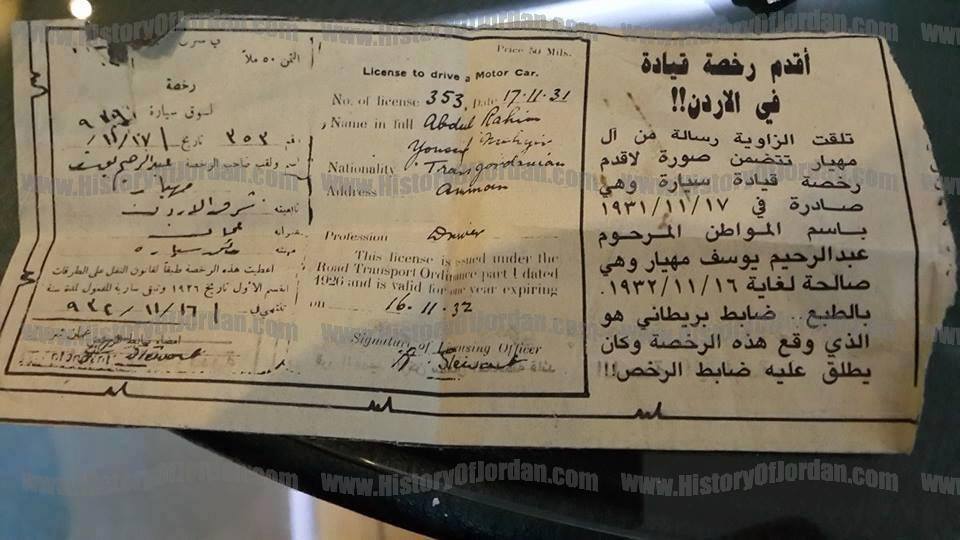 أقدم رخصة قيادة
في الاردن!!
تلقت الزاوية رسالة من آل
مهيار تتضمن صورة لاقدم
رخصة قيادة سيارة وهي
صادرة في ١٩٣١/١١/١٧
باسم المواطن المرحوم
عبدالرحيم يوسف مهيار وهي
صالحة لغاية ١٩٣٢/١١/١٦.
بالطبع.. ضابط بريطاني هو
الذي وقع هذه الرخصة وكان
يطلق عليه ضابط الرخص!!!
Price 50 Mils.
License to drive a Motor Car.
No. of license 353, Date 17.11.31
Name in full Abdul Rahim
Yousef
Nationality Transjordanian
Address Amman
Profession Driver
This license is issued under the
Road Transport Ordinance part 1 dated
1926 and is valid for one year expiring
on 16.11.32
Signature of Licensing Officer
Stewart
الثمن ٥٠ ملاً
رخصة
لسوق سيارة
رقم ٣٥٣ تاريخ ١١/١٧
اسم ولقب صاحب الرخصة عبد الرحيم يوسف
مهيار
تابعيته شرق الاردن
عنوانه عمان
مهنته سائق سيارة
اعطيت هذه الرخصة طبقاً لقانون النقل على الطرقات
القسم الأول تاريخ ١٩٢٦ وتبقى سارية المفعول لمدة سنة
تنتهي في ٩٣٢/١١/١٦
امضاء ضابط الرخص
Stewart
www.HistoryOfJordan.com